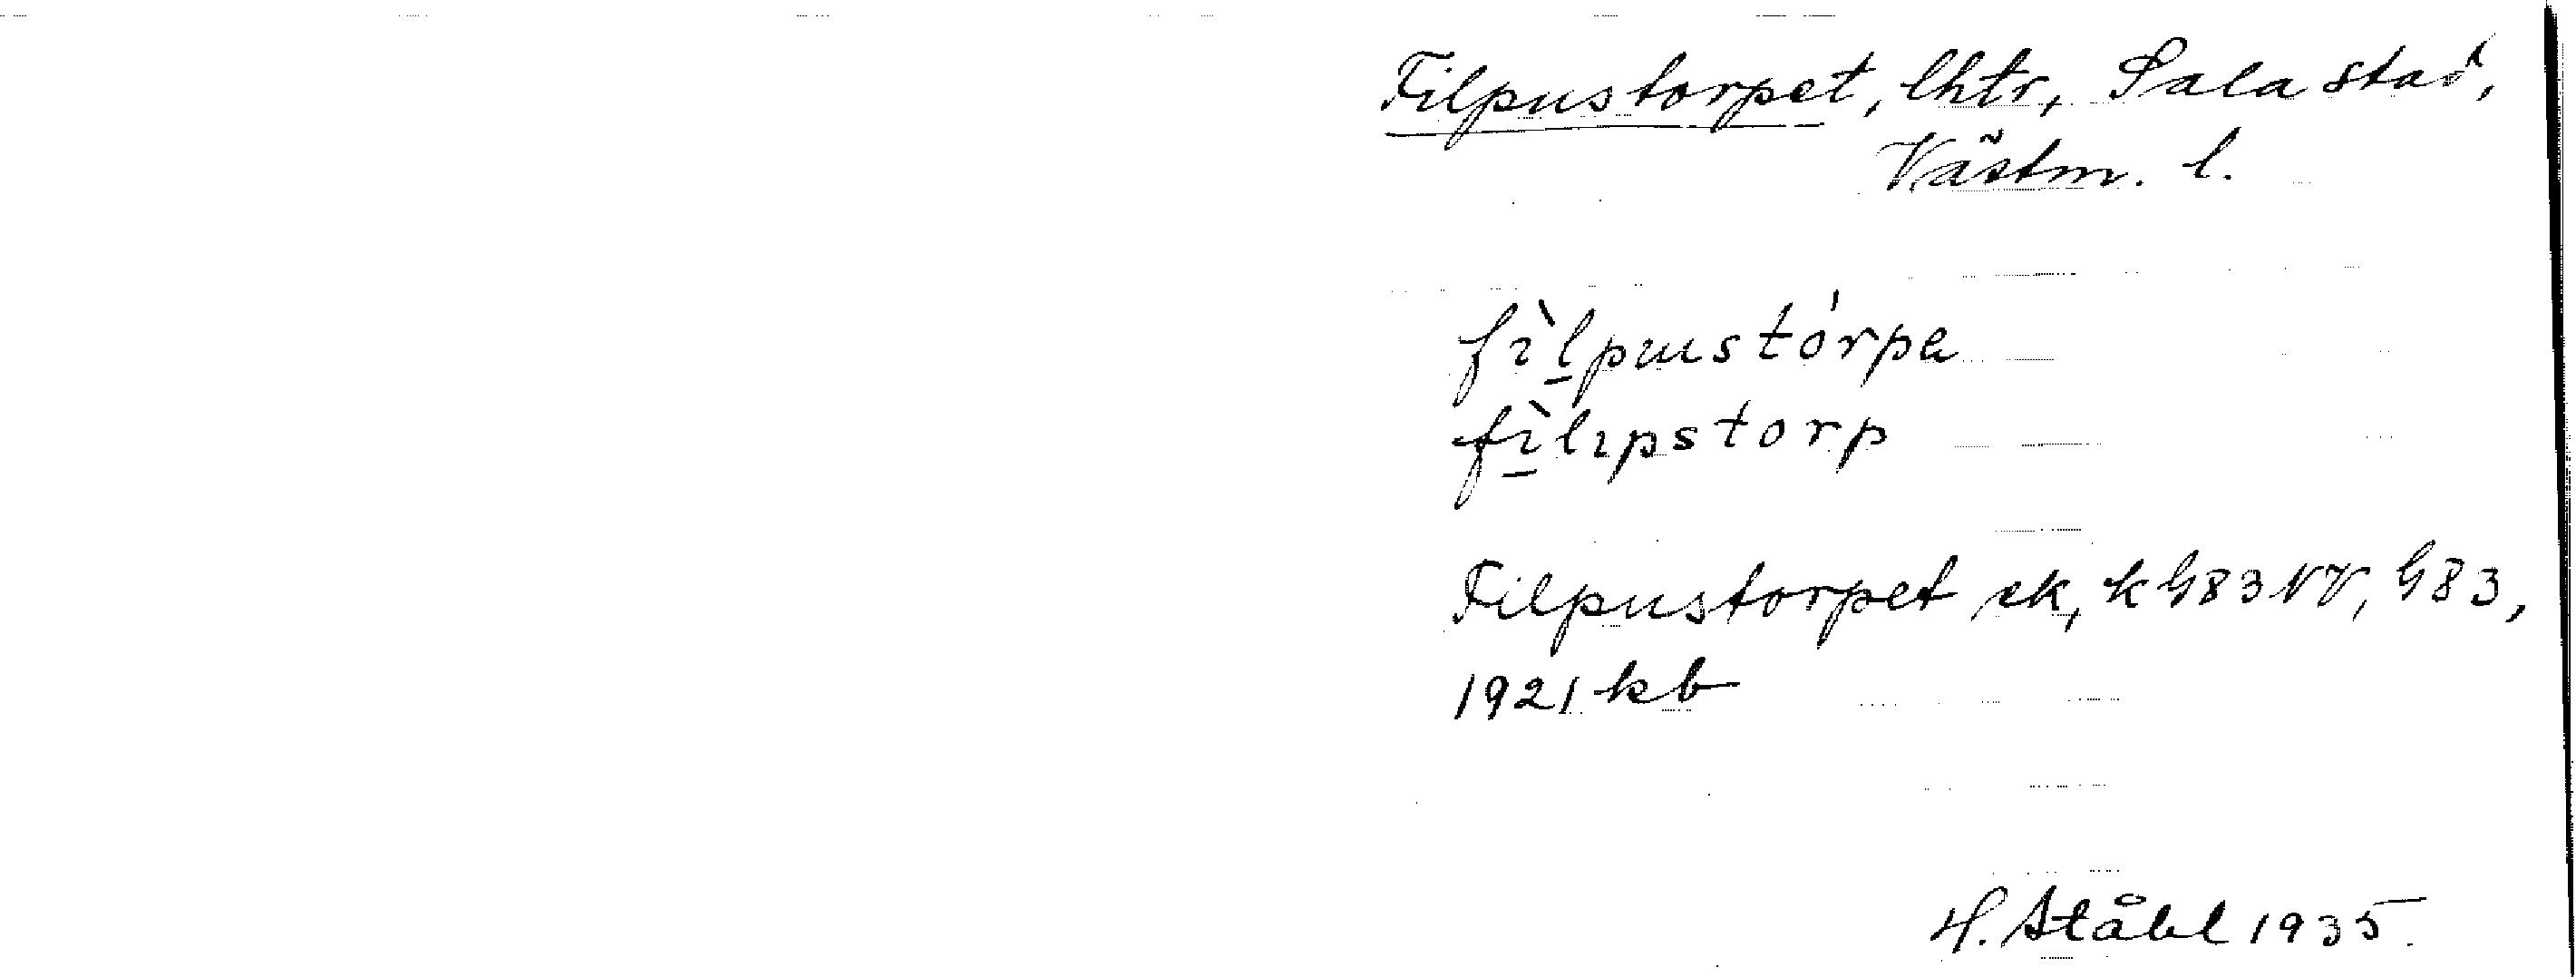 Filpustorpet, lhtr, Sala stad,
Västm. l.
fìlpustórpa
fìlipstorp
Filpustorpet ek, k G83NV, G83,
1921 kb
H. Ståhl 1935.